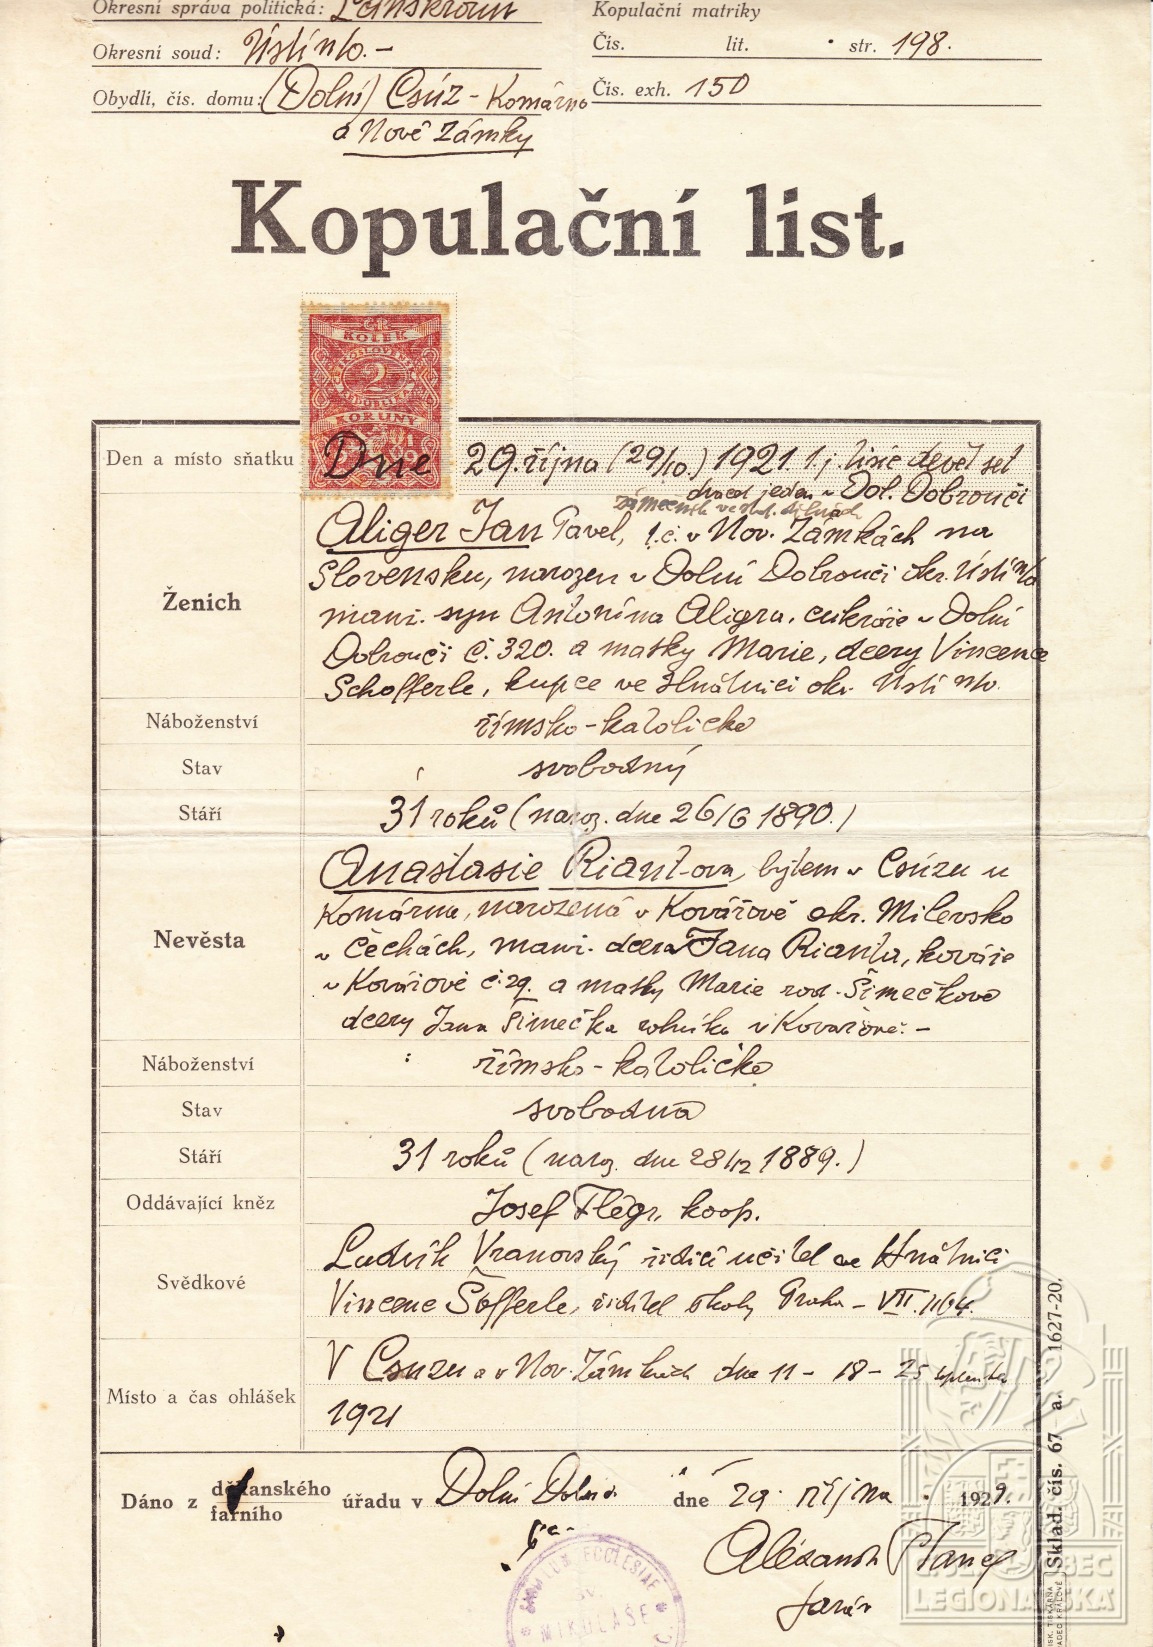 Okresní správa politická: Lanškroun
Kopulační matriky
Okresní soud: Ústí n/o. –
Čís. lit. str. 198.
Obydlí, čís. domu: (Dolní) Csúz - Komárno
Čís. exh. 150
a Nové Zámky
Kopulační list.
ČR
KOLEK
2
KORUNY
Den a místo sňatku
Dne 29. října (29/10.) 1921 t.j. tisíc devět set
dvacet jeden v Dol. Dobrouči
zámečník ve
Ženich
Aliger Jan Pavel, t.č. v Nov. Zámkách na
Slovensku, narozen v Dolní Dobrouči okr. Ústí n/o
manž. syn Antonína Aligra, cukráře v Dolní
Dobrouči č. 320. a matky Marie, dcery Vincence
Schofferle, kupce ve Hnátnici okr. Ústí n/o.
Náboženství
římsko-katolické
Stav
svobodný
Stáří
31 roků (naroz. dne 26/6 1890.)
Nevěsta
Anastasie Riant-ova, bytem v Csúzu u
Komárna, narozená v Kovářově okr. Milevsko
v Čechách, manž. dcera Jana Rianta, kováře
v Kovářově č. 29. a matky Marie roz. Šimečkové
dcery Jana Šimečka rolníka v Kovářově. –
Náboženství
římsko-katolické
Stav
svobodná
Stáří
31 roků (naroz. dne 28/12 1889.)
Oddávající kněz
Josef Flégr, koop.
Svědkové
Ludvík Vranovský řídící učitel ve Hnátnici
Vincenc Šofferle, ředitel školy Praha - VII.
Místo a čas ohlášek
V Csuzu a v Nov. Zámkách dne 11 - 18 - 25 septembra
1921
Dáno z děkanského
farního
úřadu v Dolní
dne 29. října 1929.
farář
ECCLESIAE
SV.
MIKULÁŠE
OBEC
LEGIONÁŘSKÁ
Sklad. čís. 67 a. 1627-20.